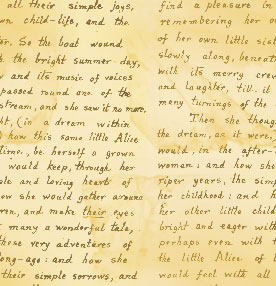 all their simple joys,
own child-life, and the
So the boat wound
the bright summer-day,
and its music of voices
passed round one of the
stream, and she saw it no more.
(in a dream within
how this same little Alice
time, be herself a grown
would keep, through her
and loving heart of
how she would gather around
and make their eyes
many a wonderful tale,
these very adventures of
long-ago: and how she
their simple sorrows, and
find a pleasure in
remembering her
of her own little sist
slowly along, beneat
with its merry crew
and laughter, till it
many turnings of the
Then she thoug
the dream, as it were,
would, in the after-
woman: and how she
riper years, the simp
her childhood: and h
her other little child
bright and eager with
perhaps even with t
the little Alice of l
would feel with all